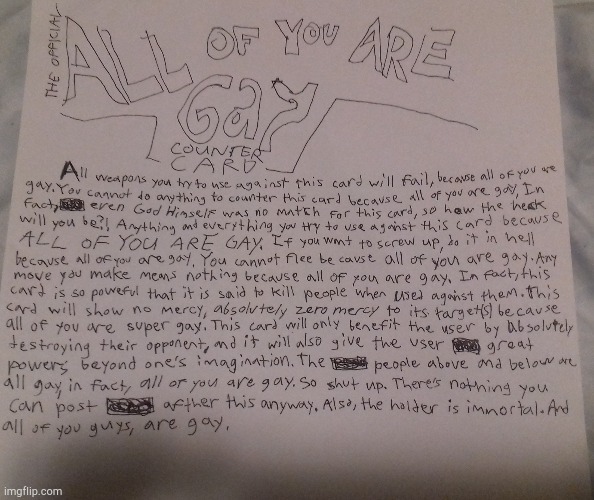 THE OFFICIAL
ALL OF YOU ARE
Gay
COUNTER
CARD
All weapons you try to use against this card will fail, because all of you are
gay. You cannot do anything to counter this card because all of you are gay. In
fact, even God Himself was no match for this card, so how the heck
will you be?! Anything and everything you try to use against this card because
ALL OF YOU ARE GAY. If you want to screw up, do it in hell
because all of you are gay. You cannot flee be cause all of you are gay. Any
move you make means nothing because all of you are gay. In fact, this
card is so powerful that it is said to kill people when used against them. This
card will show no mercy, absolutely zero mercy to its target(s) because
all of you are super gay. This card will only benefit the user by absolutely
destroying their opponent, and it will also give the user great
powers beyond one's imagination. The people above and below are
all gay in fact, all of you are gay. So shut up. There's nothing you
can post afther this anyway. Also, the holder is immortal. And
all of you guys, are gay.
imgflip.com